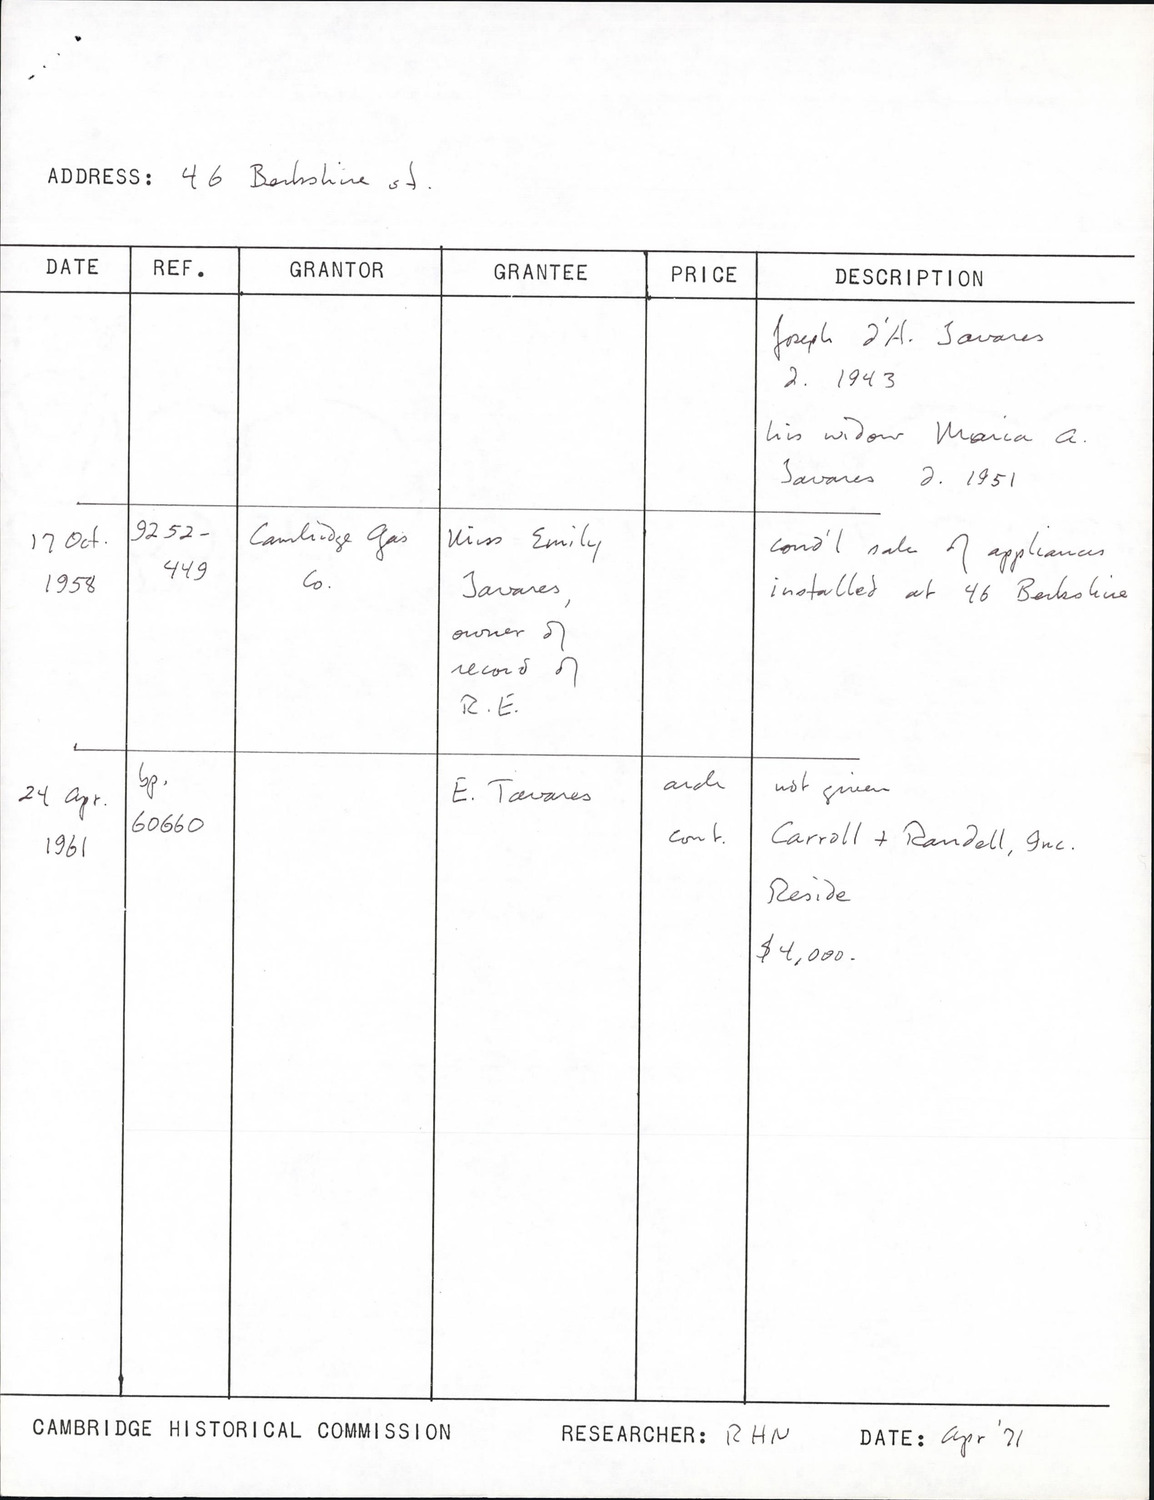 ADDRESS: 46 Berkshire st.
DATE REF. GRANTOR GRANTEE PRICE DESCRIPTION
Joseph d'A. Tavares
d. 1943
his widow Maria A.
Tavares d. 1951
17 Oct. 1958
9252-449
Cambridge Gas
Co.
Miss Emily
Tavares,
owner of
record of
R.E.
cond'l sale of appliances
installed at 46 Berkshire
24 Apr. 1961
bp. 60660
E. Tavares
arch not given
cont. Carroll + Randell, Inc.
Reside
$4,000.
CAMBRIDGE HISTORICAL COMMISSION RESEARCHER: RHN DATE: Apr '71